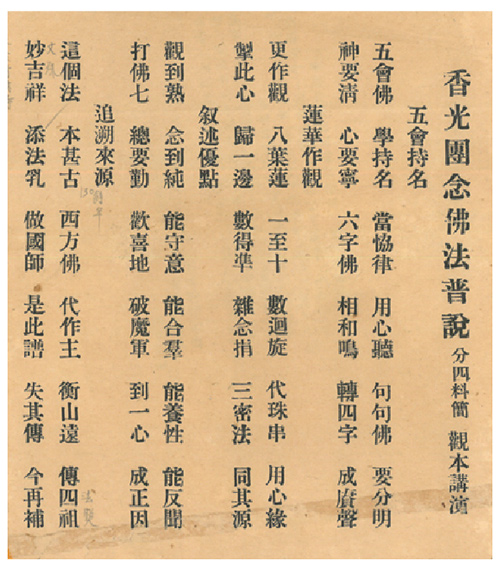 香光團念佛法普說 分四料簡 觀本講演
五會持名
五會佛 學持名 當協律 用心聽 句句佛 要分明
神要清 心要寧 六字佛 相和鳴 轉四字 成賡聲
蓮華作觀
更作觀 八葉蓮 一至十 數迴旋 代珠串 用心緣
掣此心 歸一邊 數得準 雜念捐 三密法 同其源
叙述優點
觀到熟 念到純 能守意 能合羣 能養性 能反聞
打佛七 總要勤 歡喜地 破魔軍 到一心 成正因
追溯來源
這個法 本甚古 西方佛 代作主 衡山遠 傳四祖
妙吉祥 添法乳 做國師 是此譜 失其傳 今再補